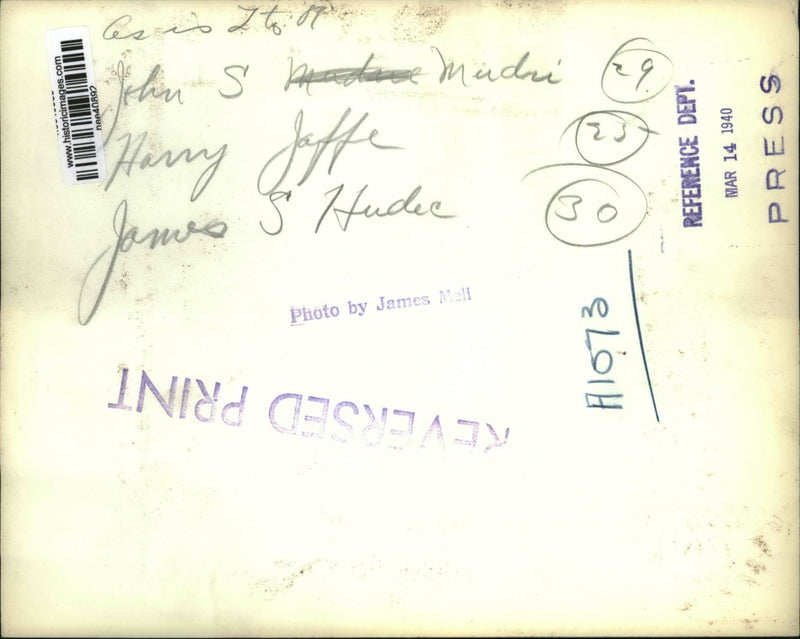 as is L to R
John S Mudri 29
Harry Jaffe 25
James S Hudec 30
www.historicimages.com
REFERENCE DEPT.
MAR 14 1940
PRESS
Photo by James Meli
A1073
REVERSED PRINT